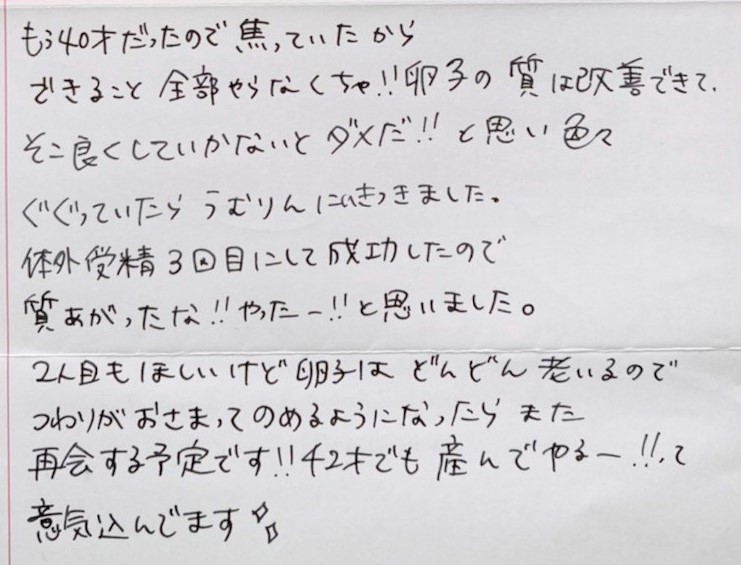 もう40才だったので焦っていたから
できること全部やらなくちゃ!!卵子の質は改善できて、
そこ良くしていかないとダメだ!!と思い色々
ぐぐっていたらうむりんにいきつきました。
体外受精3回目にして成功したので
質あがったな!!やったー!!と思いました。
2人目もほしいけど卵子はどんどん老いるので
つわりがおさまってのめるようになったらまた
再会する予定です!!42才でも産んでやるー!!って
意気込んでます✨